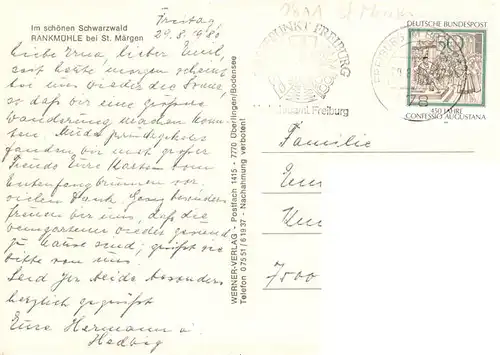 Im schönen Schwarzwald
RANKMÜHLE bei St. Märgen
Freitag
29.8.1980
Liebe Erna, lieber Emil,
erst heute morgen scheint
bei uns wieder die Sonne,
so daß wir eine größere
Wanderung machen konn-
ten. Müde zurückgekehrt
fanden wir mit großer
Freude Eure Karte vom
Entenfangbrunnen vor,
vielen Dank. Ganz besonders
freuen wir uns, daß die
wieder gesund
zu Hause sind; grüßt sie
bitte von uns.
Seid Ihr beide besonders
herzlich gegrüßt
Eure Hermann u.
Hedwig
WERNER-VERLAG - Postfach 1415 - 7770 Überlingen/Bodensee
Telefon 07551/61837 - Nachahmung verboten!
PUNKT FREIBURG
Freiburg
FREIBURG
78
DEUTSCHE BUNDESPOST
50
450 JAHRE
CONFESSIO AUGUSTANA
Familie
7500